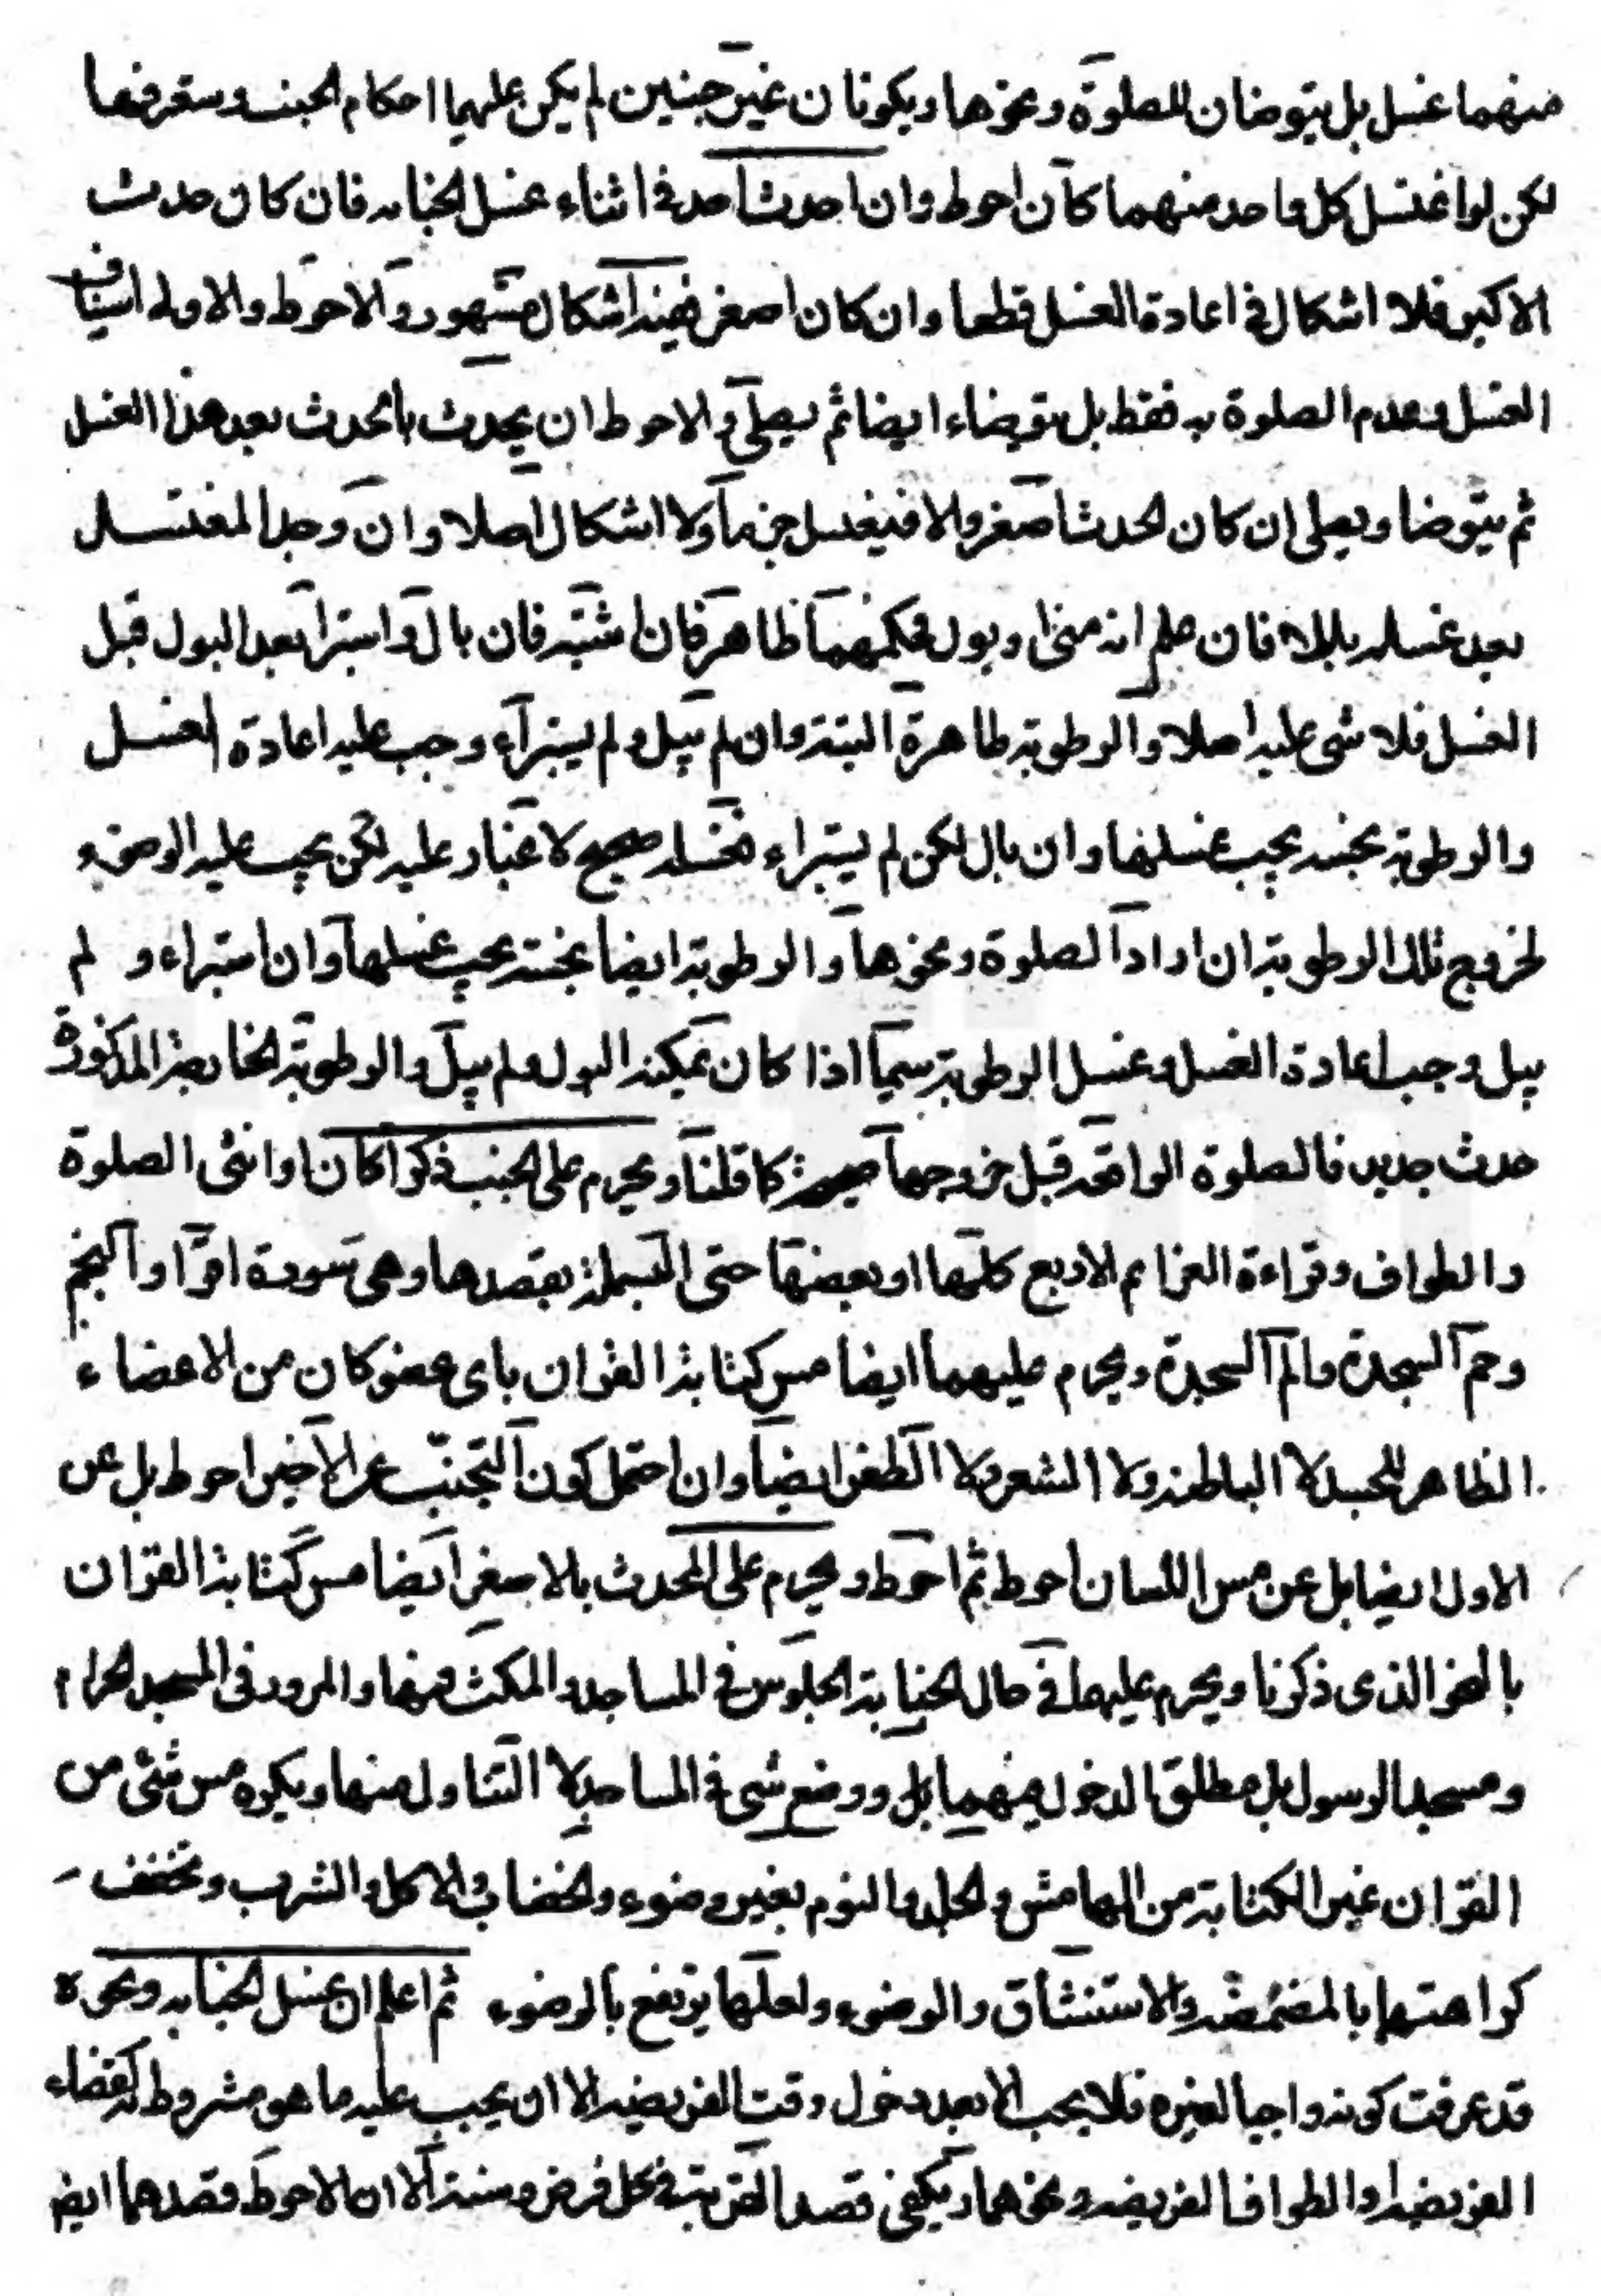 منهما غسل بل يتوضان للصلوة ونحوها ويكونان غير جنبين لم يكن عليهما احكام الجنب وستعرفها
لكن لو اغتسل كل واحد منهما كان احوط وان احدث احد في اثناء غسل الجنابه فان كان حدث
الاكبر فلا اشكال في اعادة الغسل قطعا وان كان اصغر ففيه اشكال مشهور والاحوط والاولى استيناف
الغسل وعدم الصلوة به فقط بل يتوضاء ايضا ثم يصلي والاحوط ان يحدث بالحدث بعد هذا الغسل
ثم يتوضا ويصلي ان كان الحدث اصغر والا فيغسل جزما ولا اشكال اصلا وان وجد المغتسل
بعد غسله بللا فان علم انه مني او بول فحكمهما ظاهر فان اشتبه فان بال واستبرأ بعد البول قبل
الغسل فلا شی عليه اصلا والرطوبة طاهرة البتة وان لم يبل ولم يستبرأء وجب عليه اعادة الغسل
والرطوبة نجسه يجب غسلها وان بال لكن لم يستبراء فغسله صحيح لا غبار عليه لكن يجب عليه الوضوء
لخروج تلك الرطوبة ان اراد الصلوة ونحوها والرطوبة ايضا نجسة يجب غسلها وان استبراء و لم
يبل وجب اعادة الغسل وغسل الرطوبة سيما اذا كان يمكنه البول ولم يبل والرطوبة الخارجة المذكورة
حدث جديد فالصلوة الواقعة قبل خروجها صحيحة كما قلنا ويحرم على الجنب ذكرا كان او انثى الصلوة
والطواف وقراءة العزائم الاربع كلها او بعضها حتى البسملة بقصدها وهى سورة اقرأ والنجم
وحم السجدة والم السجدة ويحرم عليهما ايضا مس كتابة القران باى عضو كان من الاعضاء
الظاهر للجسد لا الباطنه ولا الشعر ولا الظفر ايضا وان احتمل كون التجنب عن الاخير احوط بل عن
الاول ايضا بل عن مس اللسان احوط ثم احوط ويحرم على المحدث بالاصغر ايضا مس كتابة القران
بالنحو الذى ذكرنا ويحرم عليهما في حال الجنابة الجلوس في المساجد والمكث فيها والمرور فى المسجد الحرام
ومسجد الرسول بل مطلق الدخول فيهما بل ووضع شى في المساجد لا التناول منها ويكره مس شئى من
القران غير الكتابة من الهامش والجلد والنوم بغير وضوء والخضاب والاكل والشرب وتخفف
كراهتها بالمضمضه والاستنشاق والوضوء ولعلها يرتفع بالوضوء ثم اعلم ان غسل الجنابه ونحوه
قد عرفت كونه واجبا لغيره فلا يجب الا بعد دخول وقت الفريضه الا ان يجب عليه ما هو مشروط به كقضاء
الفريضه او الطواف الفريضه ونحوهما ويكفى قصد القربة في كل فرض وسنة الا ان الاحوط قصدهما ايضا